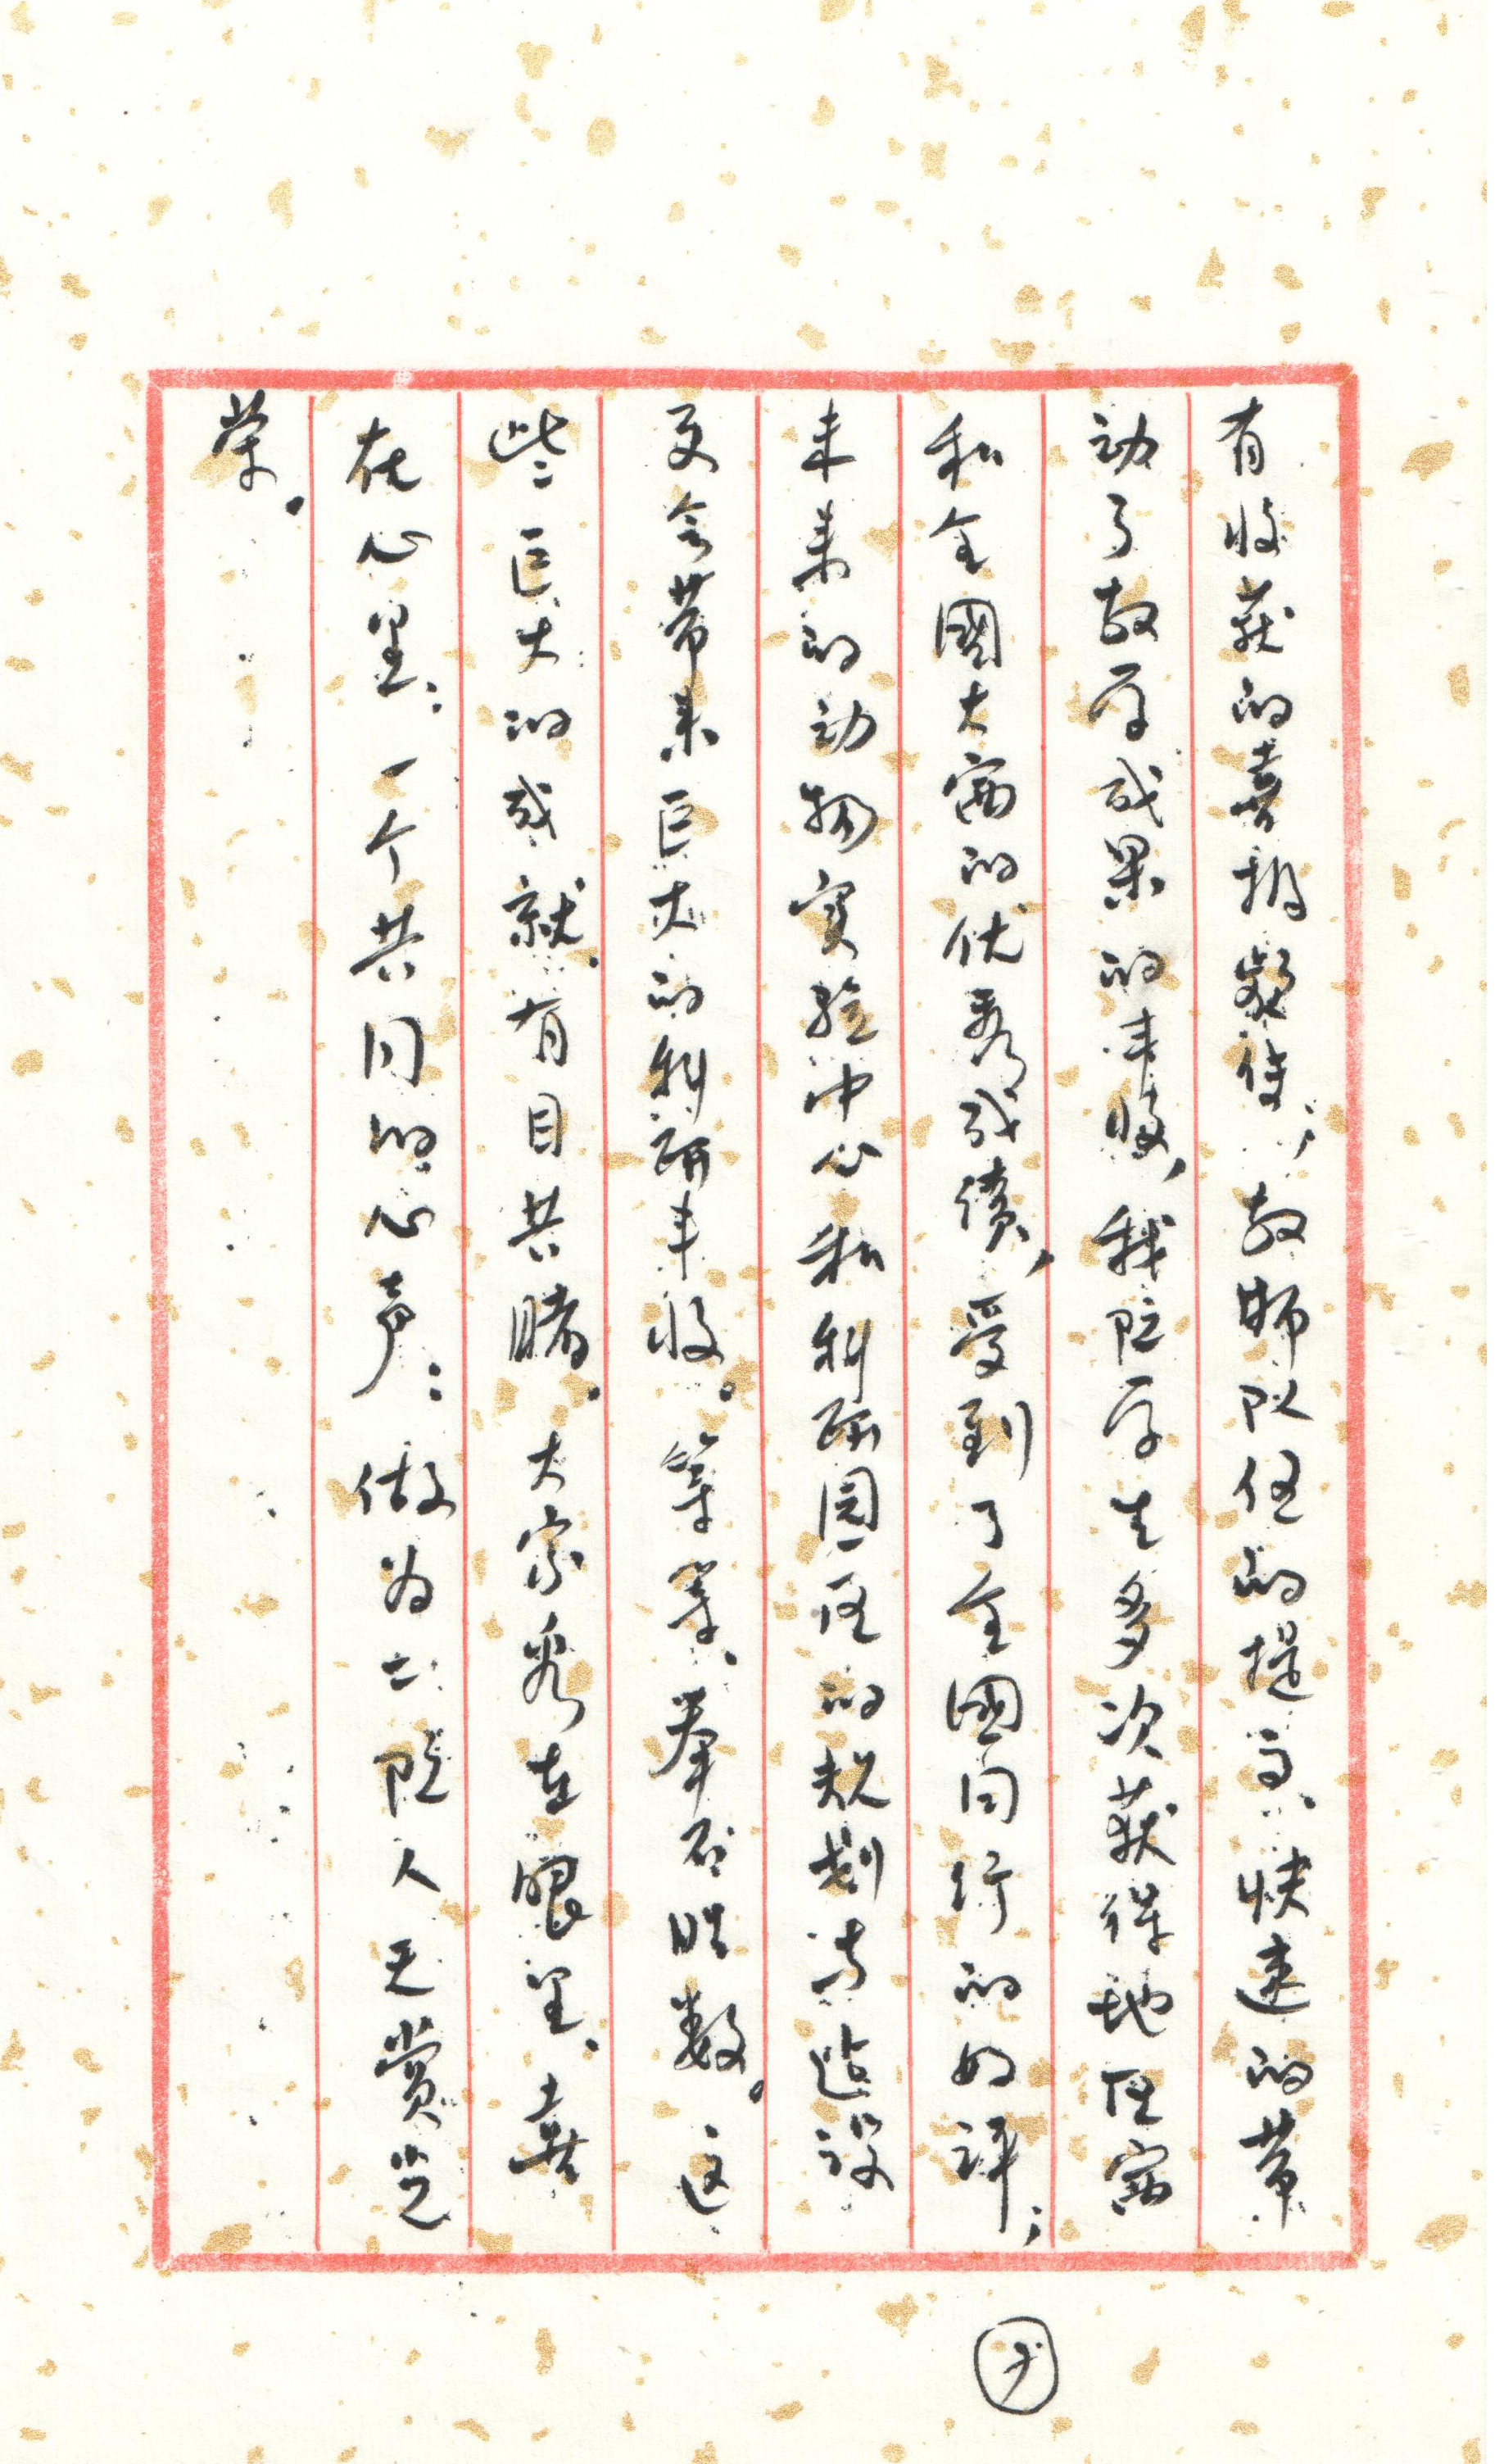 有收获的喜报频传，教师队伍的提高、快速的带
动了教学成果的丰收，我院学生多次获得地区赛
和全國大赛的优秀成绩，受到了全國同行的好评；
未来的动物实验中心和科研园区的规划与建设
更会带来巨大的科研丰收。等等、举不胜数。这
些巨大的成就、有目共睹。大家看在眼里、喜
在心里、一个共同的心声：做为二院人无赏光
荣。